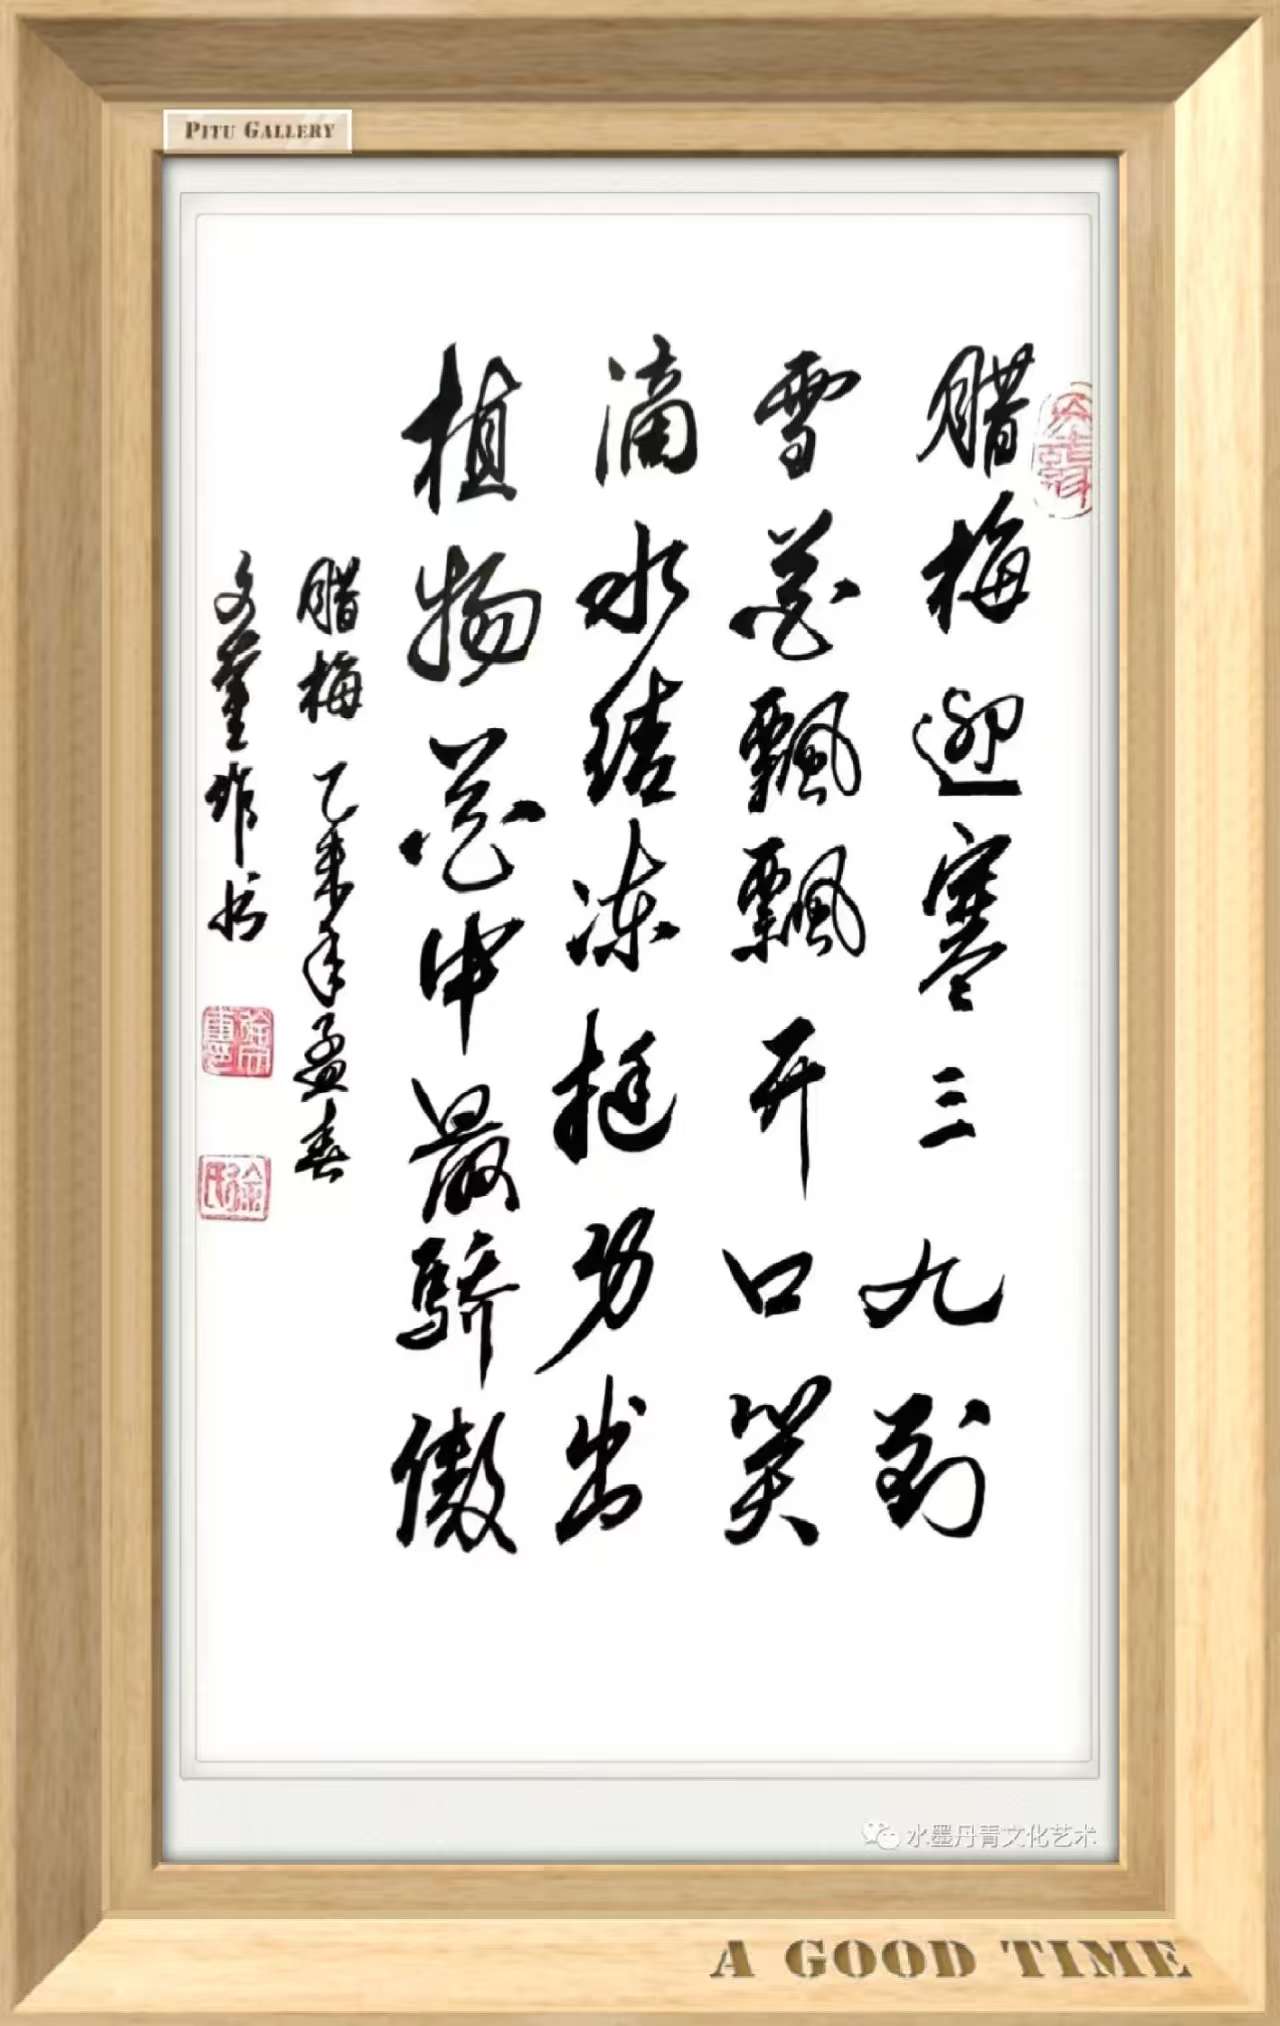 PITU GALLERY
腊梅迎寒三九到
雪花飘飘开口笑
滴水结冻挺身出
植物花中最骄傲
腊梅 乙未年孟春
文董作书
水墨丹青文化艺术
A GOOD TIME